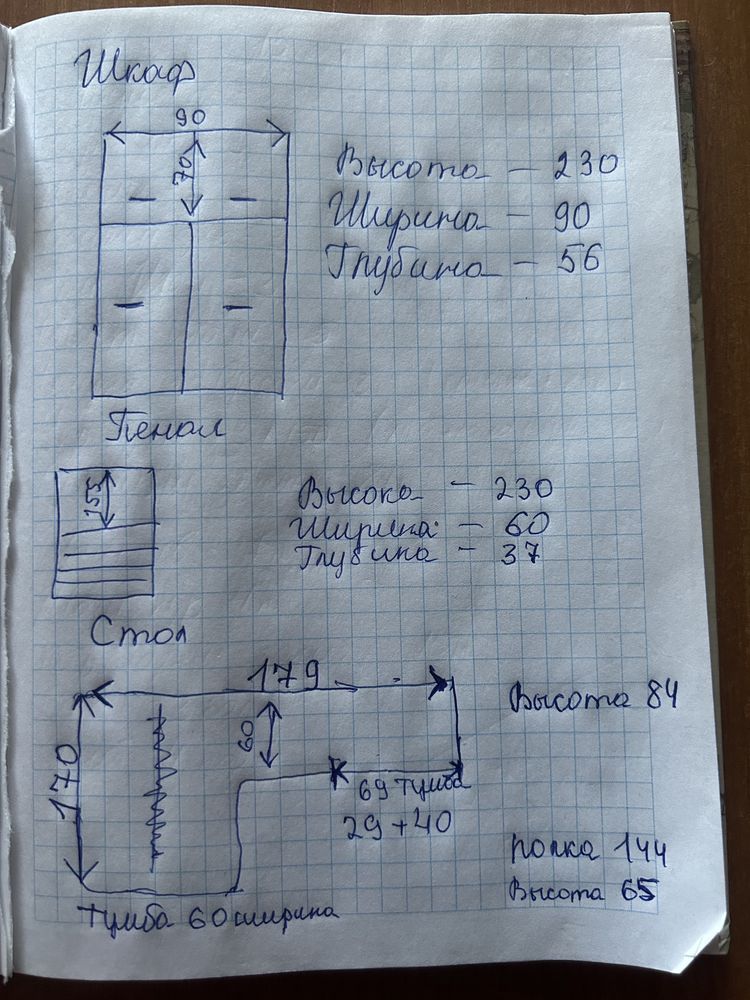 Шкаф
90
70
Высота – 230
Ширина – 90
Глубина – 56
Пенал
155
Высока – 230
Ширина – 60
Глубина – 37
Стол
179
Высота 84
60
170
69 тумба
29+40
полка 144
Высота 65
Тумба 60 ширина